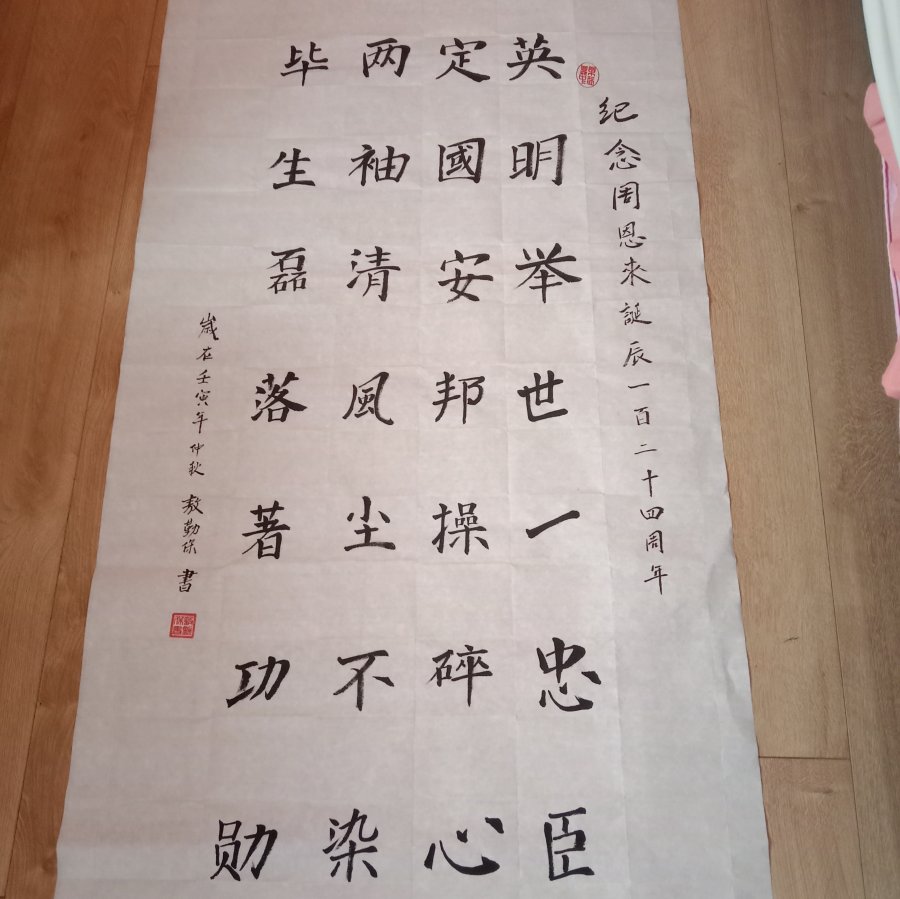 纪念周恩来誕辰一百二十四周年
英明举世一忠臣
定國安邦操碎心
两袖清风尘不染
毕生磊落著功勋
歲在壬寅年仲秋 敖勤 書